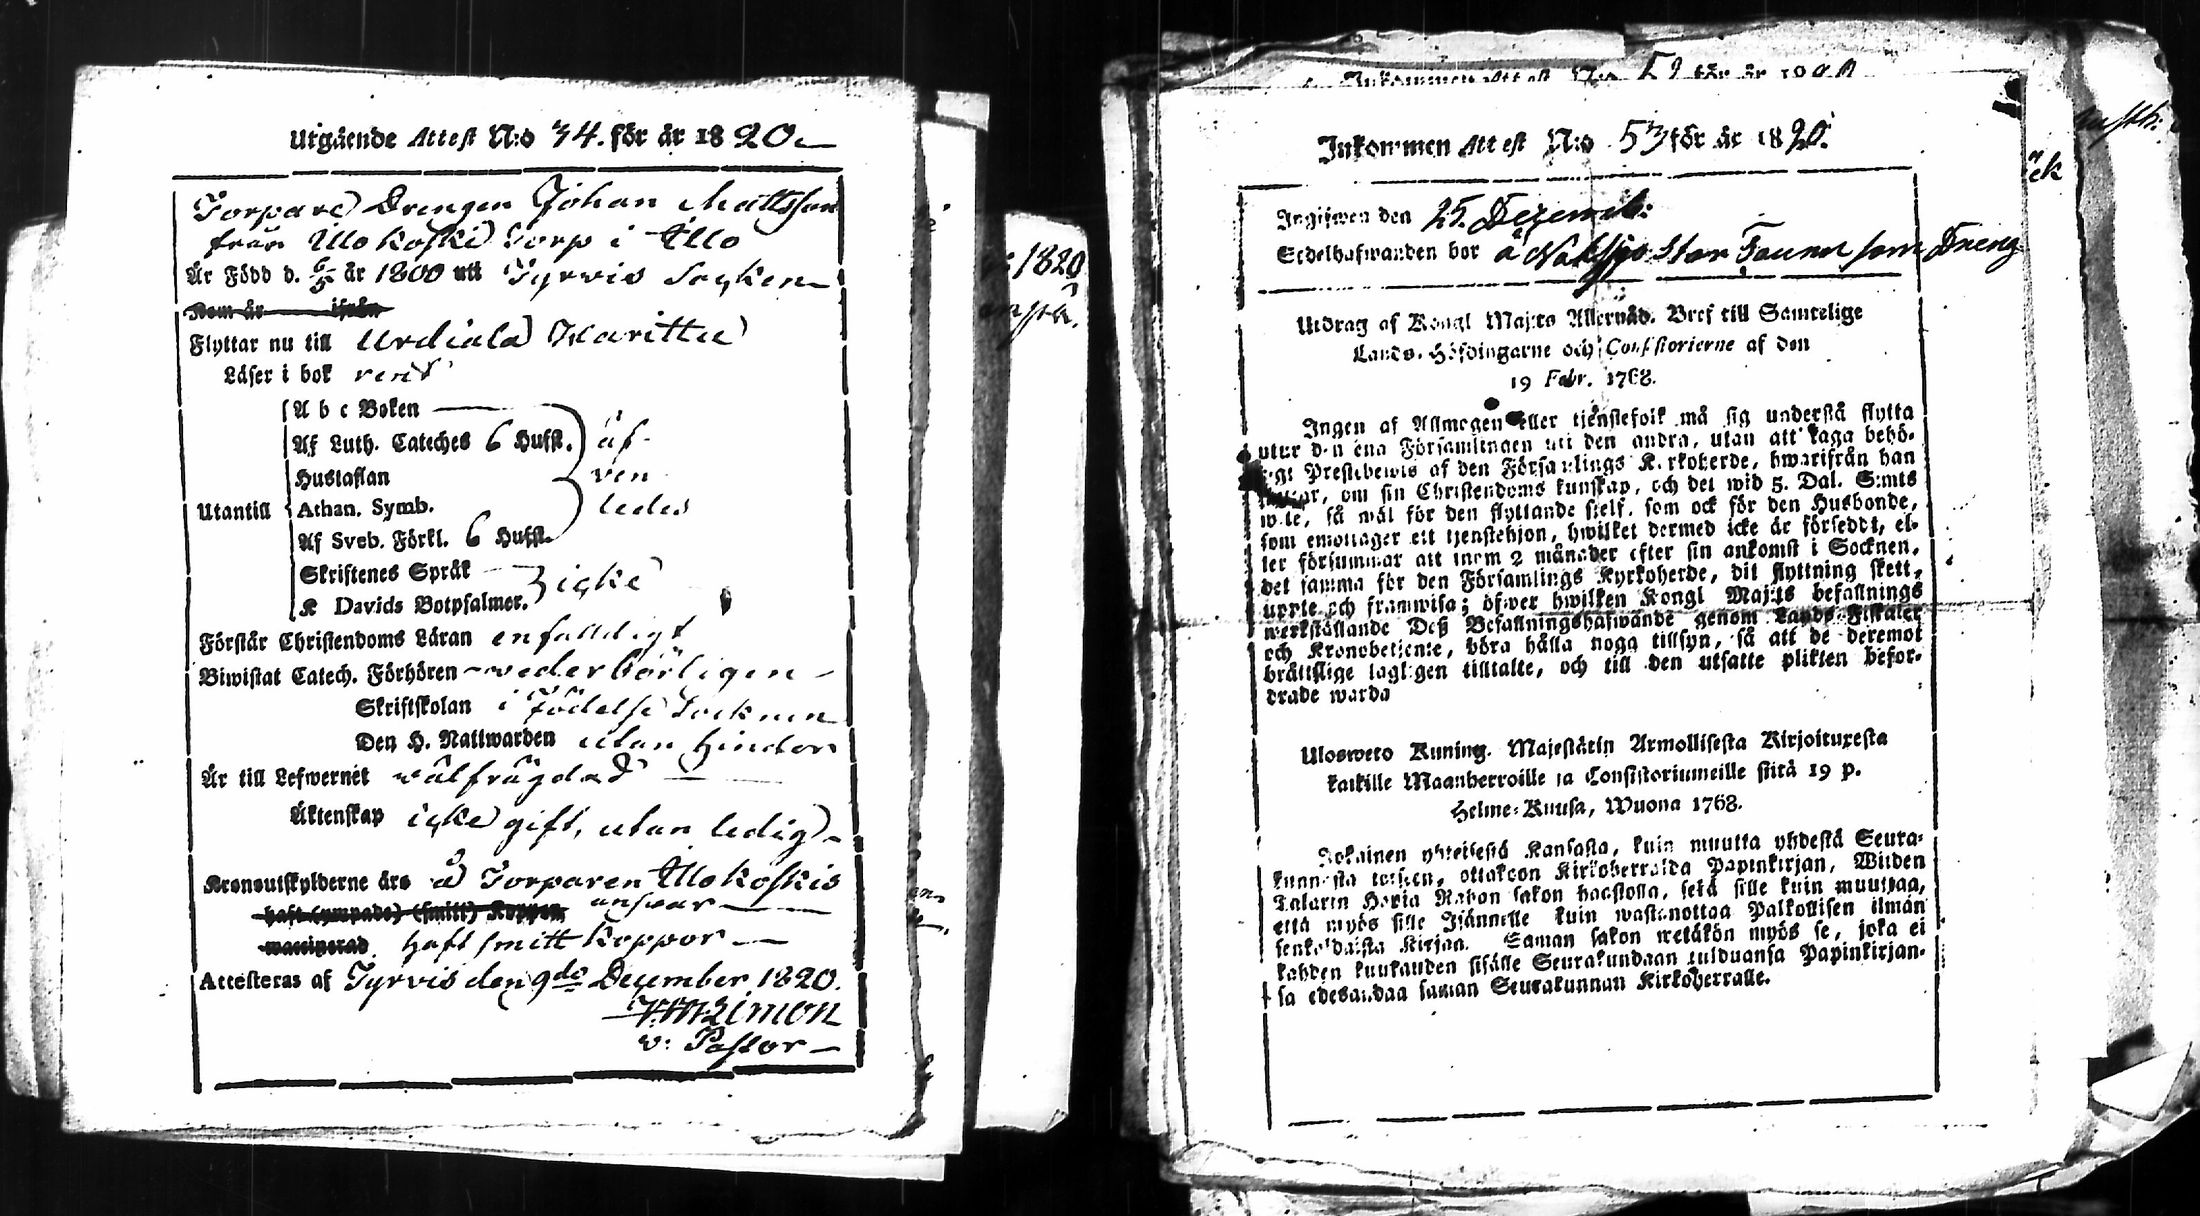 Utgående Attest N:o 34. för år 1820
Torpare Drengen Johan Mattsson
från Ulokoski Torp i Illo
Är Född d. år 1800 uti Tyrvis Socken
Kom år ifrån
Flyttar nu till Urdiala
Läser i bok rent
A b c Boken
Af Luth. Cateches 6 Hufst. äf-
Hustaflan ven
Utantill Athan. Symb. ledes
Af Sveb. Förkl. 6 Hufst.
Skriftenes Språk
K Davids Botpsalmer. icke
Förstår Christendoms Läran enfaldigt
Biwistat Catech. Förhören wederbörligen
Skriftskolan i Födelse Socknen
Den H. Nattwarden utan hinder
Är till Lefwernet wälfrägdad
Äktenskap icke gift, utan ledig
Kronoutskylderne äro å Torparen Ulokoskis
haft (ympade) (smitt) Koppor ansvar
haft smitt Koppor
Attesteras af Tyrvis den 9de December 1820.
v: Pastor
1820
Inkommen Attest N:o för år
Inkommen Attest N:o 53 för år 1820.
Ingifwen den 25. Decemb:
Sedelhafwanden bor å Star Fauner som Dreng
Utdrag af Kongl Maj:ts Allernåd. Bref till Samtelige
Lands-Höfdingarne och Consistorierne af den
19 Febr. 1768.
Ingen af Allmogen eller tjenstefolk må sig understå flytta
utur den ena Församlingen uti den andra, utan att taga behö-
rigt Prestebewis af den Församlings Kyrkoherde, hwarifrån han
flyttar, om sin Christendoms kunskap, och det wid 5. Dal. S:mts
wite, så wäl för den flyttande sjelf, som ock för den Husbonde,
som emottager ett tjenstehjon, hwilket dermed icke är försedt, el-
ler försummar att inom 2 månader efter sin ankomst i Socknen,
det samma för den Församlings Kyrkoherde, dit flyttning skett,
uppte och framwisa; öfwer hwilken Kongl Maj:ts befallnings
werkställande Deß Befallningshafwande genom Lands-Fiskaler
och Kronobetjente, böra hålla noga tillsyn, så att de deremot
brättslige lagligen tilltalte, och till den utsatte plikten befor-
drade warda
Ulosweto Kuning. Majestätin Armollisesta Kirjoituxesta
kaikille Maanherroille ja Consistoriumeille siitä 19 p.
Helme-Kuusa, Wuona 1768.
Jokainen yhteisestä Kansasta, kuin muutta yhdestä Seura-
kunnasta toiseen, ottakoon Kirkoherralda Papinkirjan, Wiiden
Talarin Hopia Rahan sakon haastolla, sekä sille kuin muuttaa,
että myös sille Isännelle kuin wastanottaa Palkollisen ilman
senkaldaista Kirjan. Saman sakon wetäkön myös se, joka ei
kahden kuukauden sisälle Seurakundaan tulduansa Papinkirjan-
sa edesandaa saman Seurakunnan Kirkoherralle.